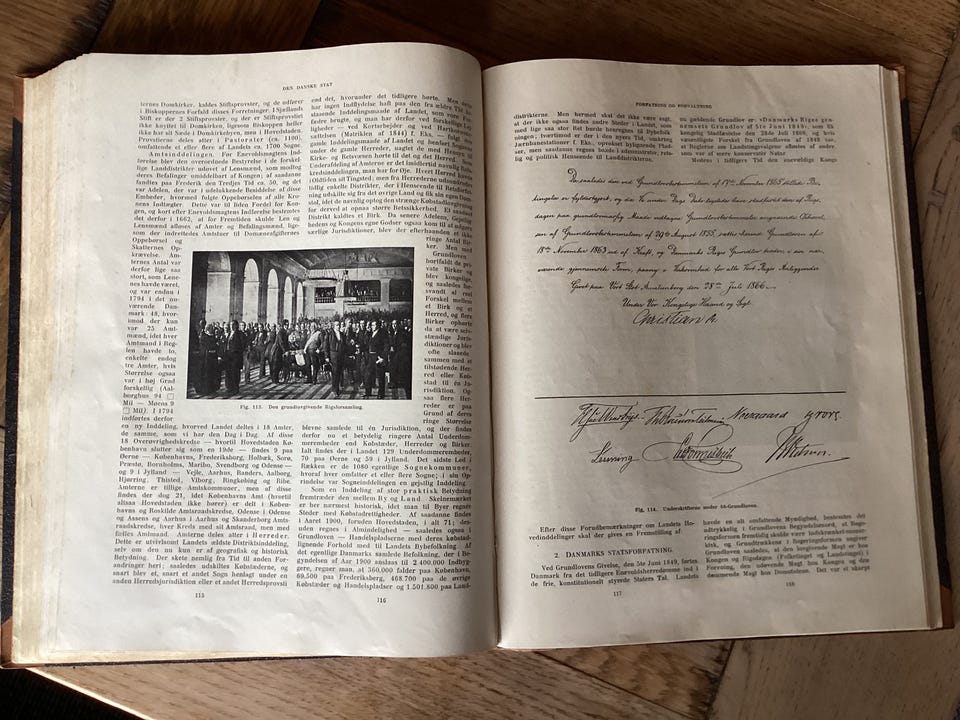 DEN DANSKE STAT
ternes Domkirker, kaldes Stiftsprovster, og de udfører
i Biskoppernes Forfald disses Forretninger. I Sjællands
Stift er der 2 Stiftsprovster, og der er Stiftsprovster
ikke knyttet til Domkirken, ligesom Biskoppen heller
ikke har sit Sæde i Domkirkebyen, men i Hovedstaden.
Provstierne deles atter i Pastorater (ca. 1100),
omfattende et eller flere af Landets ca. 1700 Sogne.
Amtsinddelingen. Før Enevoldsmagtens Ind-
førelse blev den overordnede Bestyrelse i de forskel-
lige Landdistrikter udøvet af Lensmænd, som modtog
deres Befalinger umiddelbart af Kongen; af saadanne
fandtes paa Frederik den Tredjes Tid ca. 50, og det
var Adelen, der var i udelukkende Besiddelse af disse
Embeder, hvormed fulgte Oppebørslen af alle Kro-
nens Indtægter. Dette var til liden Fordel for Kon-
gen, og kort efter Enevoldsmagtens Indførelse bestemtes
det derfor i 1662, at for Fremtiden skulde Len og
Lensmænd afløses af Amter og Befalingsmænd, lige-
som der indrettedes Amtstuer til Domæneafgifternes
Oppebørsel og
Skatternes Op-
krævelse. Am-
ternes Antal var
derfor lige saa
stort, som Lene-
nes havde været,
og var endnu i
1794 i det nu-
værende Dan-
mark 48, hvor-
imod der kun
var 25 Amt-
mænd, idet hver
Amtmand i Reg-
len havde to,
enkelte endog
tre Amter, hvis
Størrelse ogsaa
var i høj Grad
forskellig (Aal-
borghus 94 □
Mil — Møens 9
□ Mil). I 1794
indførtes derfor
en ny Inddeling, hvorved Landet deltes i 18 Amter,
de samme, som vi har den Dag i Dag. Af disse
18 Overøvrighedskredse — hvortil Hovedstaden Kø-
benhavn slutter sig som en 19de — findes 9 paa
Øerne — Københavns, Frederiksborg, Holbæk, Sorø,
Præstø, Bornholms, Maribo, Svendborg og Odense —
og 9 i Jylland — Vejle, Aarhus, Randers, Aalborg,
Hjørring, Thisted, Viborg, Ringkøbing og Ribe.
Amterne er tillige Amtskommuner, men af disse
findes der dog 21, idet Københavns Amt (hvortil
altsaa Hovedstaden ikke hører) er delt i Køben-
havns og Roskilde Amtsraadskredse, Odense i Odense
og Assens og Aarhus i Aarhus og Skanderborg Amts-
raadskredse, hver Kreds med sit Amtsraad, men med
fælles Amtmand. Amterne deles atter i Herreder.
Dette er vistnok Landets ældste Distriktsinddeling,
selv om den nu kun er af geografisk og historisk
Betydning. Der skete nemlig fra Tid til anden For-
andringer heri: saaledes udskiltes Købstæderne, og
snart blev et, snart et andet Sogn henlagt under en
anden Herredsjurisdiktion eller et andet Herredsprovsti
115
end det, hvorunder det tidligere hørte. Men dette
har ingen Indflydelse haft paa den fra ældre Tid be-
staaende Inddelingsmaade af Landet, som vore For-
fædre brugte, og man har derfor ved forskellige Lej-
ligheder — ved Kortarbejder og ved Hartkornsan-
sættelsen (Matriklen af 1844) f. Eks. — fulgt den
gamle Inddelingsmaade af Landet og henført Sognene
under de gamle Herreder, uagtet de med Hensyn til
Kirke- og Retsvæsen hørte til det og det Herred. Som
Underafdeling af Amterne er det indtraadt navnlig
kredsinddelingen, man har for Øje. Hvert Herred havde
i Oldtiden sit Tingsted; men fra Herrederne udsondredes
tidlig enkelte Distrikter, der i Henseende til Retsforfat-
ning udskilte sig fra det øvrige Land og fik sin egen Dom-
stol, idet de nævnlig optog den strænge Købstadlovgivning
for derved at opnaa større Betssikkerhed. Et saadant
Distrikt kaldtes et Birk. Da senere Adelens, Gejstlig-
hedens og Kongens egne Godser ogsaa kom til at udgøre
særlige Jurisdiktioner, blev der efterhaanden et ikke
ringe Antal Bir-
ker. Men med
Grundloven
bortfaldt de pri-
vate Birker og
blev kongelige,
og saaledes for-
svandt al reel
Forskel mellem
et Birk og et
Herred, og flere
Birker ophørte
da at være selv-
stændige Juris-
diktioner og blev
ofte slaaede
sammen med et
tilstødende Her-
red eller Køb-
stad til én Ju-
risdiktion. Og-
saa flere Her-
reder er paa
Grund af deres
ringe Størrelse
blevne samlede til én Jurisdiktion, og der findes
derfor nu et betydelig ringere Antal Underdom-
merembeder end Købstæder, Herreder og Birker.
Ialt findes der i Landet 129 Underdommerembeder,
70 paa Øerne og 59 i Jylland. Det sidste Led i
Rækken er de 1080 egentlige Sognekommuner,
hvoraf hver omfatter et eller flere Sogne; i sin Op-
rindelse var Sogneinddelingen en gejstlig Inddeling.
Som en Inddeling af stor praktisk Betydning
fremtræder den mellem By og Land. Skelnemærket
er her nærmest historisk, idet man til Byer regner
Steder med Købstadrettigheder. Af saadanne findes
i Aaret 1900, foruden Hovedstaden, i alt 71; des-
uden regnes i Almindelighed — saaledes ogsaa i
Grundloven — Handelspladserne med deres købstad-
lignende Forhold med til Landets Bybefolkning. Af
det egentlige Danmarks samlede Befolkning, der i Be-
gyndelsen af Aar 1900 anslaas til 2 400.000 Indbyg-
gere, regner man, at 360.000 falder paa København,
69.500 paa Frederiksberg, 468.700 paa de øvrige
Købstæder og Handelspladser og 1.501.800 paa Land-
116
Fig. 113. Den grundlovgivende Rigsforsamling.
FORFATNING OG FORVALTNING
distrikterne. Men hermed skal det ikke være sagt,
at der ikke ogsaa findes andre Steder i Landet, som
med lige saa stor Ret burde henregnes til Bybefolk-
ningen; tværtimod er der i den nyere Tid, omkring
Jærnbanestationer f. Eks., opvokset bylignende Plad-
ser, men saadanne regnes baade i administrativ, rets-
lig og politisk Henseende til Landdistrikterne.
nu gældende Grundlov er: »Danmarks Riges grun-
Grundlov af 5te Juni 1849«, som en
kongelig Stadfæstelse den 28de Juli 1866, og hvis
væsentligste Forskel fra Grundloven af 1849 laa
at Reglerne om Landstingsvalgene affattes af andre,
som var af mere konservativ Natur
Medens i tidligere Tid den enevældige Konge
Da saaledes den ved Grundlovsbestemmelsen af 17de November 1865 stillede Be-
tingelse er fyldestgjort,
dagen paa grundlovmæssig Maade vedtagne Grundlovsbestemmelse angaaende
sen af Grundlovsbestemmelsen af 29de August 1855, sættes herved Grundloven af
18de November 1863 ud af Kraft, og Danmarks Riges Grundlov træder i sin nær-
værende gjennemsete Form, paany i Virksomhed for alle Vort Riges Anliggender.
Givet paa Vort Slot Amalienborg den 28de Juli 1866.
Under Vor Kongelige Haand og Segl.
Christian R.
Neergaard
Fig. 114. Underskrifterne under 66-Grundloven.
Efter disse Forudbemærkninger om Landets Ho-
vedinddelinger skal der gives en Fremstilling af
2. DANMARKS STATSFORFATNING
Ved Grundlovens Givelse, den 5te Juni 1849, førtes
Danmark fra det tidligere Enevoldsherredømme ind i
de frie, konstitutionelt styrede Staters Tal. Landets
117
havde en alt omfattende Myndighed, bestemtes det
udtrykkelig i Grundlovens Begyndelsesord, at Rege-
ringsformen fremtidig skulde være indskrænket-monar-
kisk, og Grundtrækkene i Regeringsformen angiver
Grundloven saaledes, at den lovgivende Magt er hos
Kongen og Rigsdagen (Folketinget og Landstinget) i
Forening, den udøvende Magt hos Kongen og den
dømmende Magt hos Domstolene. Det var et skarpt
118